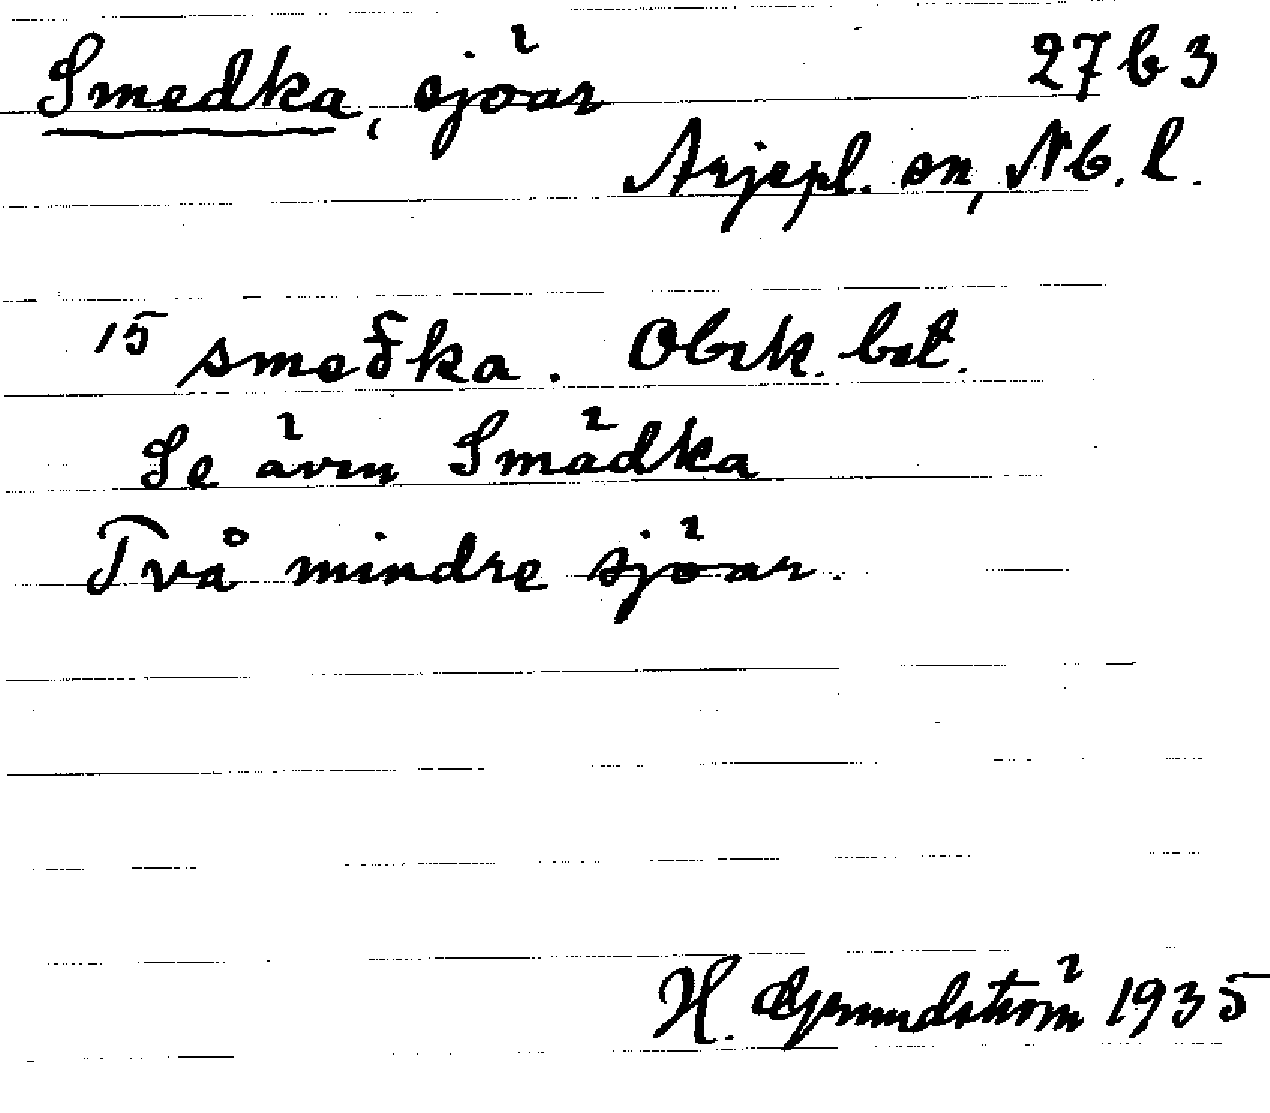 Smedka, sjöar 27 b 3
Arjepl. sn, Nb. l.
15 smeδka. Obek. bet.
Se även Smädka
Två mindre sjöar.
H. Grundström 1935